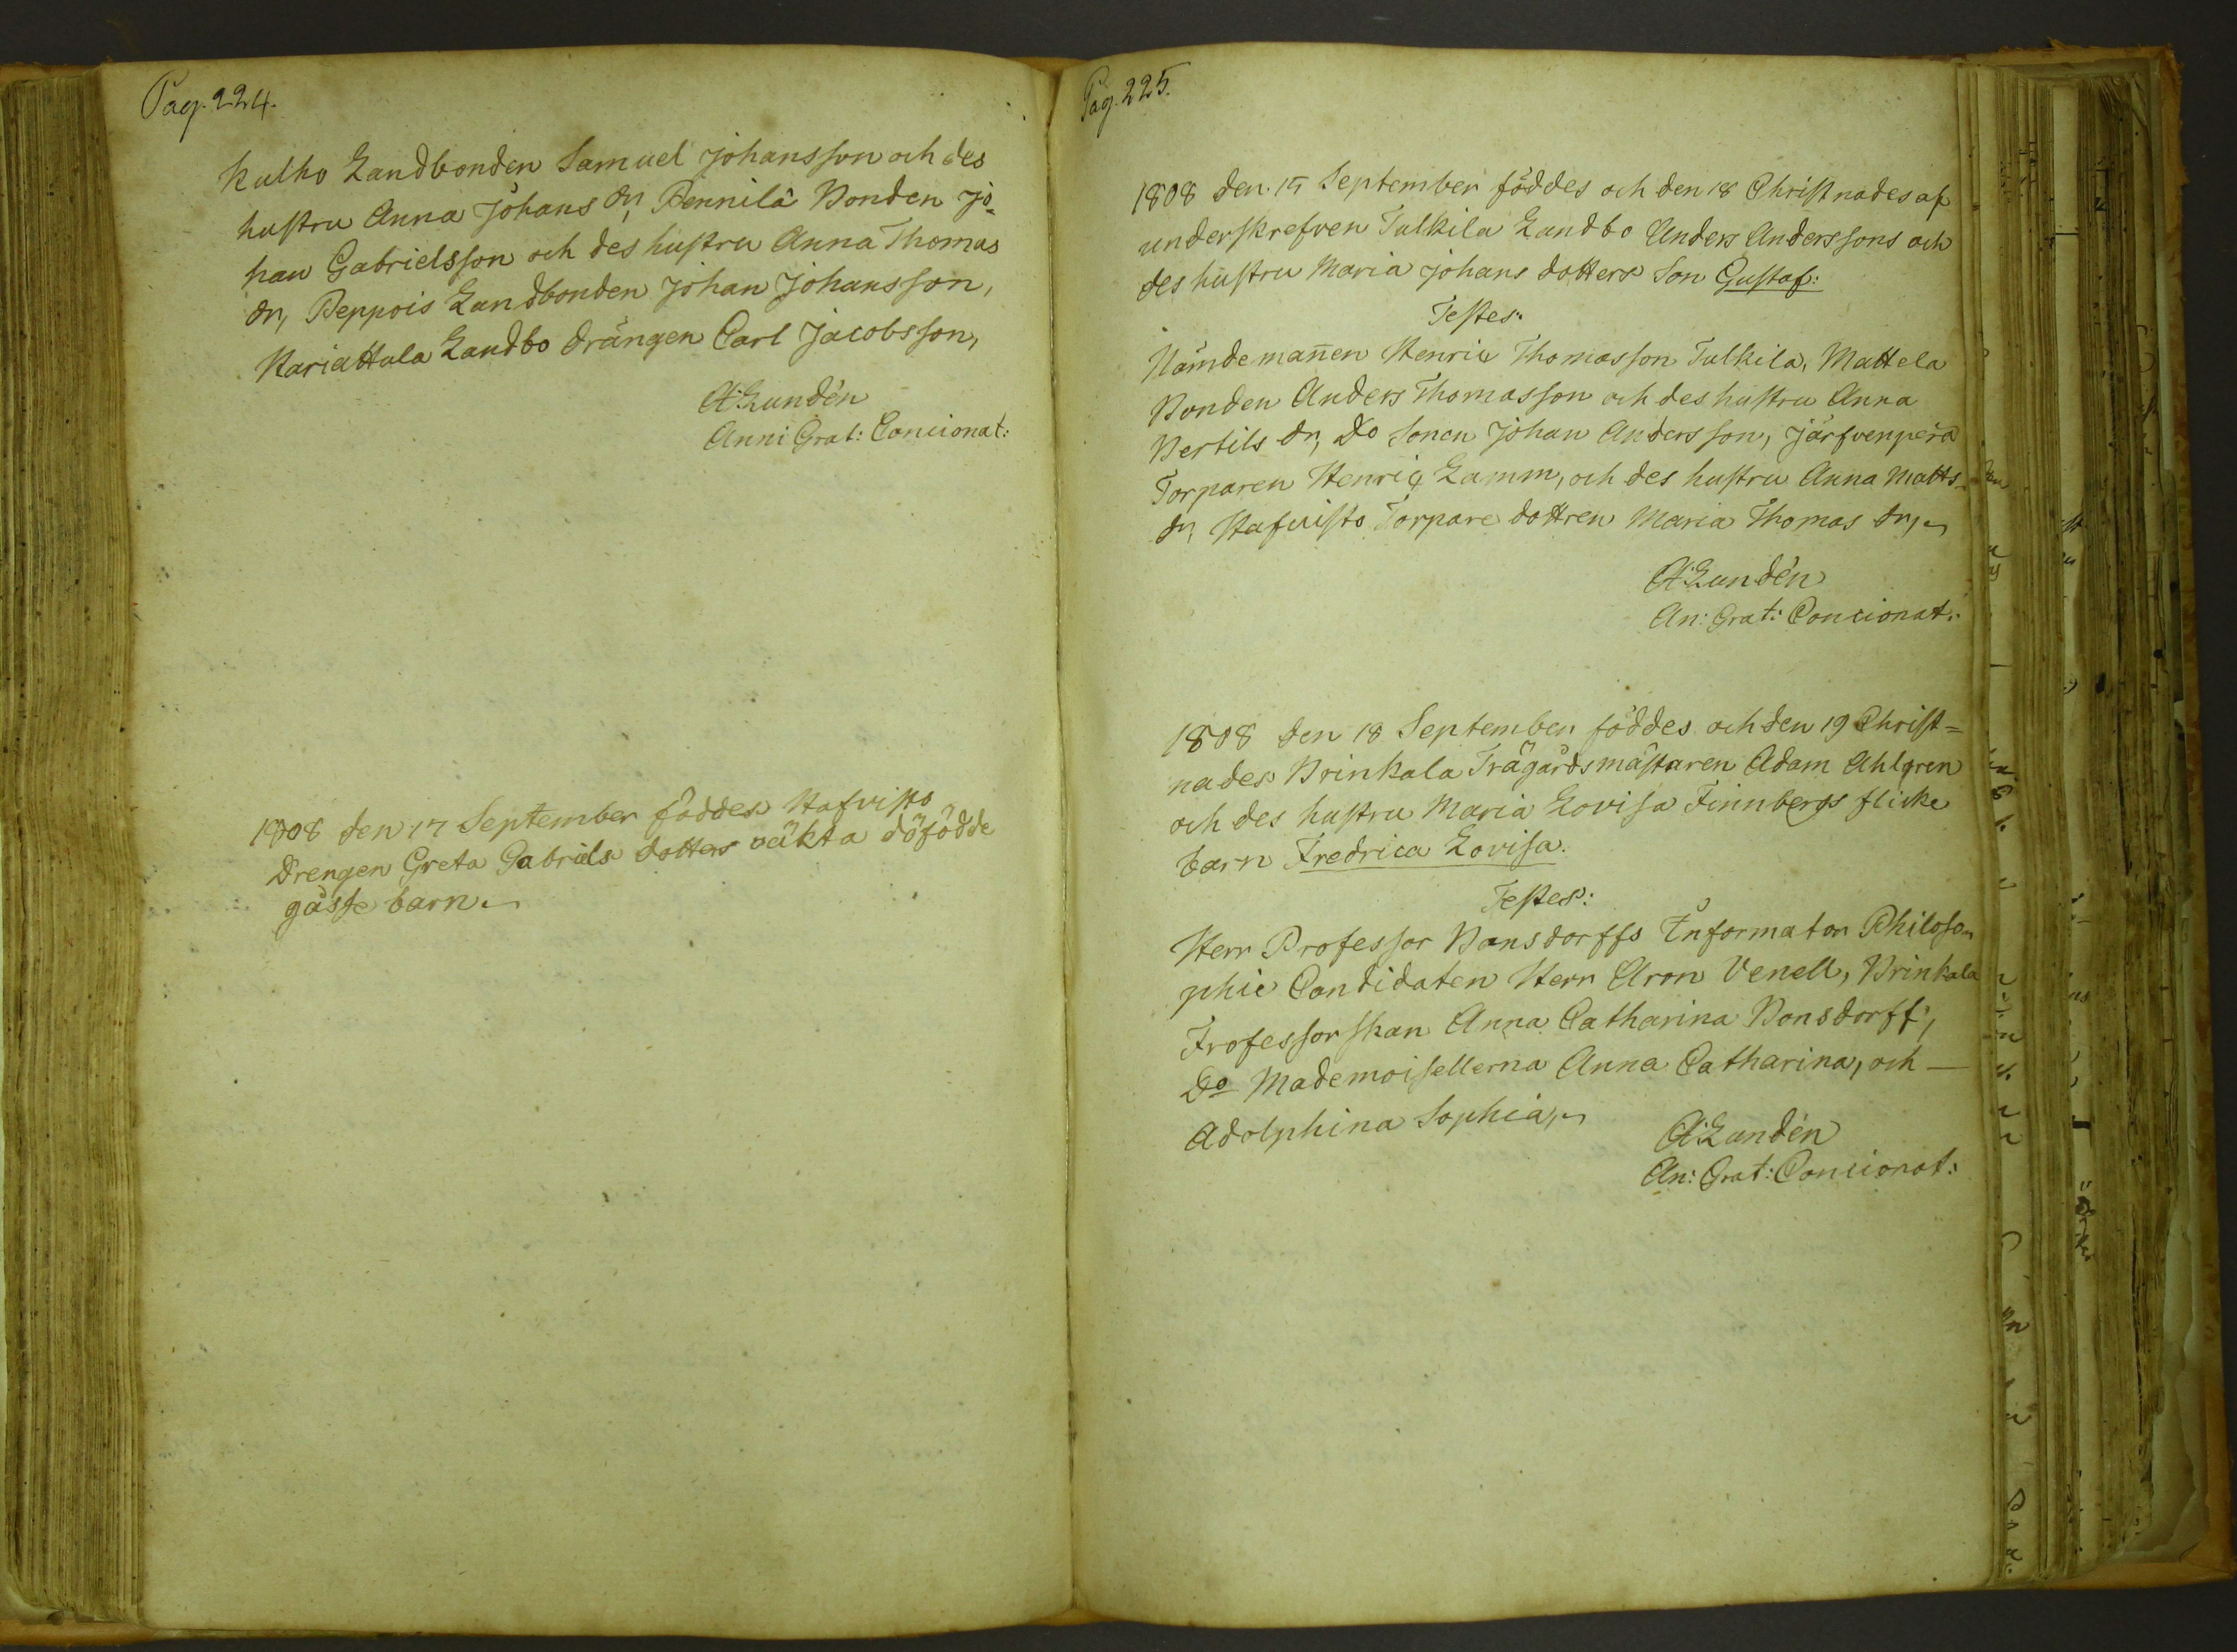 Pag. 224.
Kulho Landbonden Samuel Johansson och des
hustru Anna Johans dr, Pennilä Bonden Jo=
han Gabrielsson och des hustru Anna Thomas
dr, Peppois Landbonden Johan Johansson,
Kariattula Landbo drängen Carl Jacobsson,
A: Lundén
Anni Grat: Concionat:
1808 den 17 September föddes Hafvisto
Drengen Greta Gabriels dotters oäkta döfödde
gåsse barn.
Pag. 225.
1808 den 15 September föddes och den 18 Christnades af
underskrefven Tulkila Landbo Anders Anderssons och
des hustru Maria Johans dotters Son Gustaf:
Testes:
Nämdemannen Henric Thomasson Tulkila, Mattela
Bonden Anders Thomasson och des hustru Anna
Bertils dr, Do Sonen Johan Andersson, Järfvenperä
Torparen Henric Lamm, och des hustru Anna Matts
dr, Hafuisto Torpare dottren Maria Thomas dr,
A: Lundén
An: Grat: Concionat:
1808 den 18 September föddes och den 19 Christ=
nades Brinkala Trägårdsmästaren Adam Ahlgren
och des hustru Maria Lovisa Finnbergs flicke
barn Fredrica Lovisa.
Testes:
Herr Professor Bonsdorffs Informator Philoso=
phie Candidaten Herr Aron Venell, Brinkala
Professorskan Anna Catharina Bonsdorff,
Do Mademoisellerna Anna Catharina, och —
Adolphina Sophia,
A: Lundén
An: Grat: Concionat: